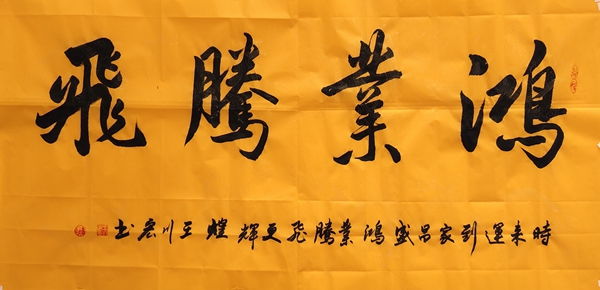 鴻業騰飛
時来運到家昌盛鴻業騰飛更輝煌川宏书